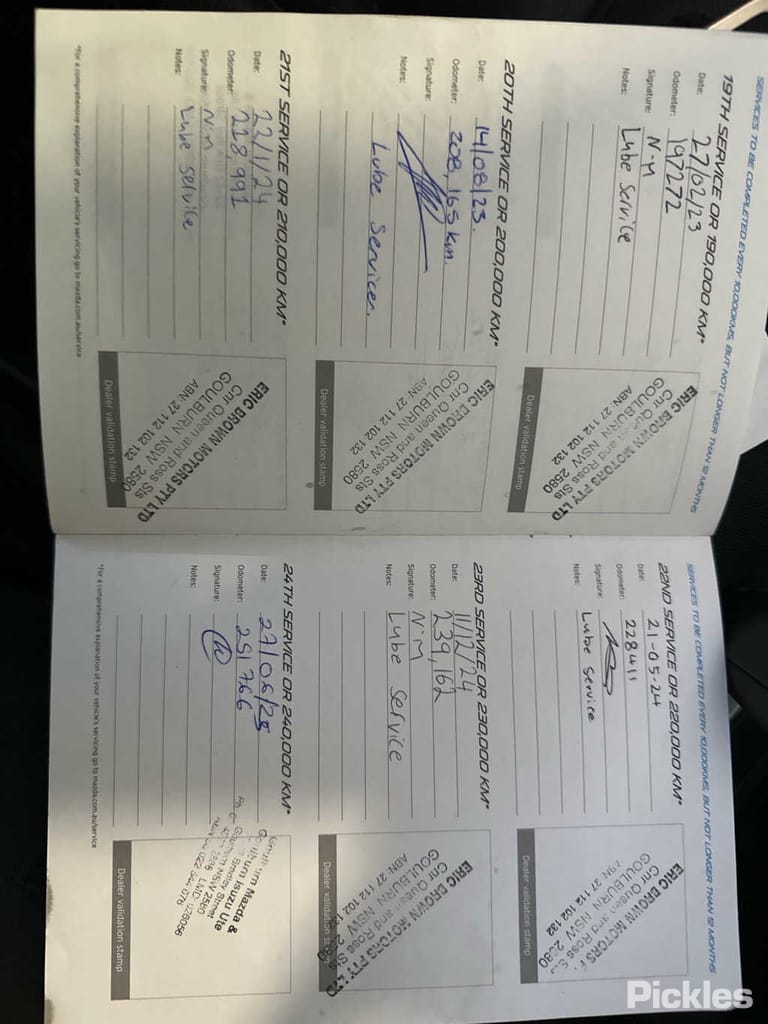 SERVICES TO BE COMPLETED EVERY 10,000KMS, BUT NOT LONGER THAN 12 MONTHS
19TH SERVICE OR 190,000 KM*
Date: 27/02/23
Odometer: 197272
Signature: N-M
Notes: Lube Service
ERIC BROWN MOTORS PTY LTD
Cnr Queen and Ross Sts
GOULBURN NSW 2580
ABN: 27 112 102 132
Dealer validation stamp
20TH SERVICE OR 200,000 KM*
Date: 14/08/23.
Odometer: 208,165 km.
Signature:
Notes: Lube Service.
ERIC BROWN MOTORS PTY LTD
Cnr Queen and Ross Sts
GOULBURN NSW 2580
ABN: 27 112 102 132
Dealer validation stamp
21ST SERVICE OR 210,000 KM*
Date: 22/1/24
Odometer: 218,991
Signature: N.m
Notes: Lube Service
ERIC BROWN MOTORS PTY LTD
Cnr Queen and Ross Sts
GOULBURN NSW 2580
ABN: 27 112 102 132
Dealer validation stamp
*For a comprehensive explanation of your vehicle's servicing go to mazda.com.au/service
SERVICES TO BE COMPLETED EVERY 10,000KMS, BUT NOT LONGER THAN 12 MONTHS
22ND SERVICE OR 220,000 KM*
Date: 21-05-24
Odometer: 228411
Signature:
Notes: Lube Service
ERIC BROWN MOTORS P
Cnr Queen and Ross Sts
GOULBURN NSW 2580
ABN: 27 112 102 132
Dealer validation stamp
23RD SERVICE OR 230,000 KM*
Date: 11/12/24
Odometer: 239,162
Signature: N.M
Notes: Lube Service
ERIC BROWN MOTORS PTY LTD
Cnr Queen and Ross Sts
GOULBURN NSW 2580
ABN: 27 112 102 132
Dealer validation stamp
24TH SERVICE OR 240,000 KM*
Date: 27/06/25
Odometer: 251766
Signature:
Notes:
Goulburn Mazda &
Goulburn Isuzu Ute
Bradley Street
Goulburn NSW 2580
Dealer validation stamp
*For a comprehensive explanation of your vehicle's servicing go to mazda.com.au/service
Pickles